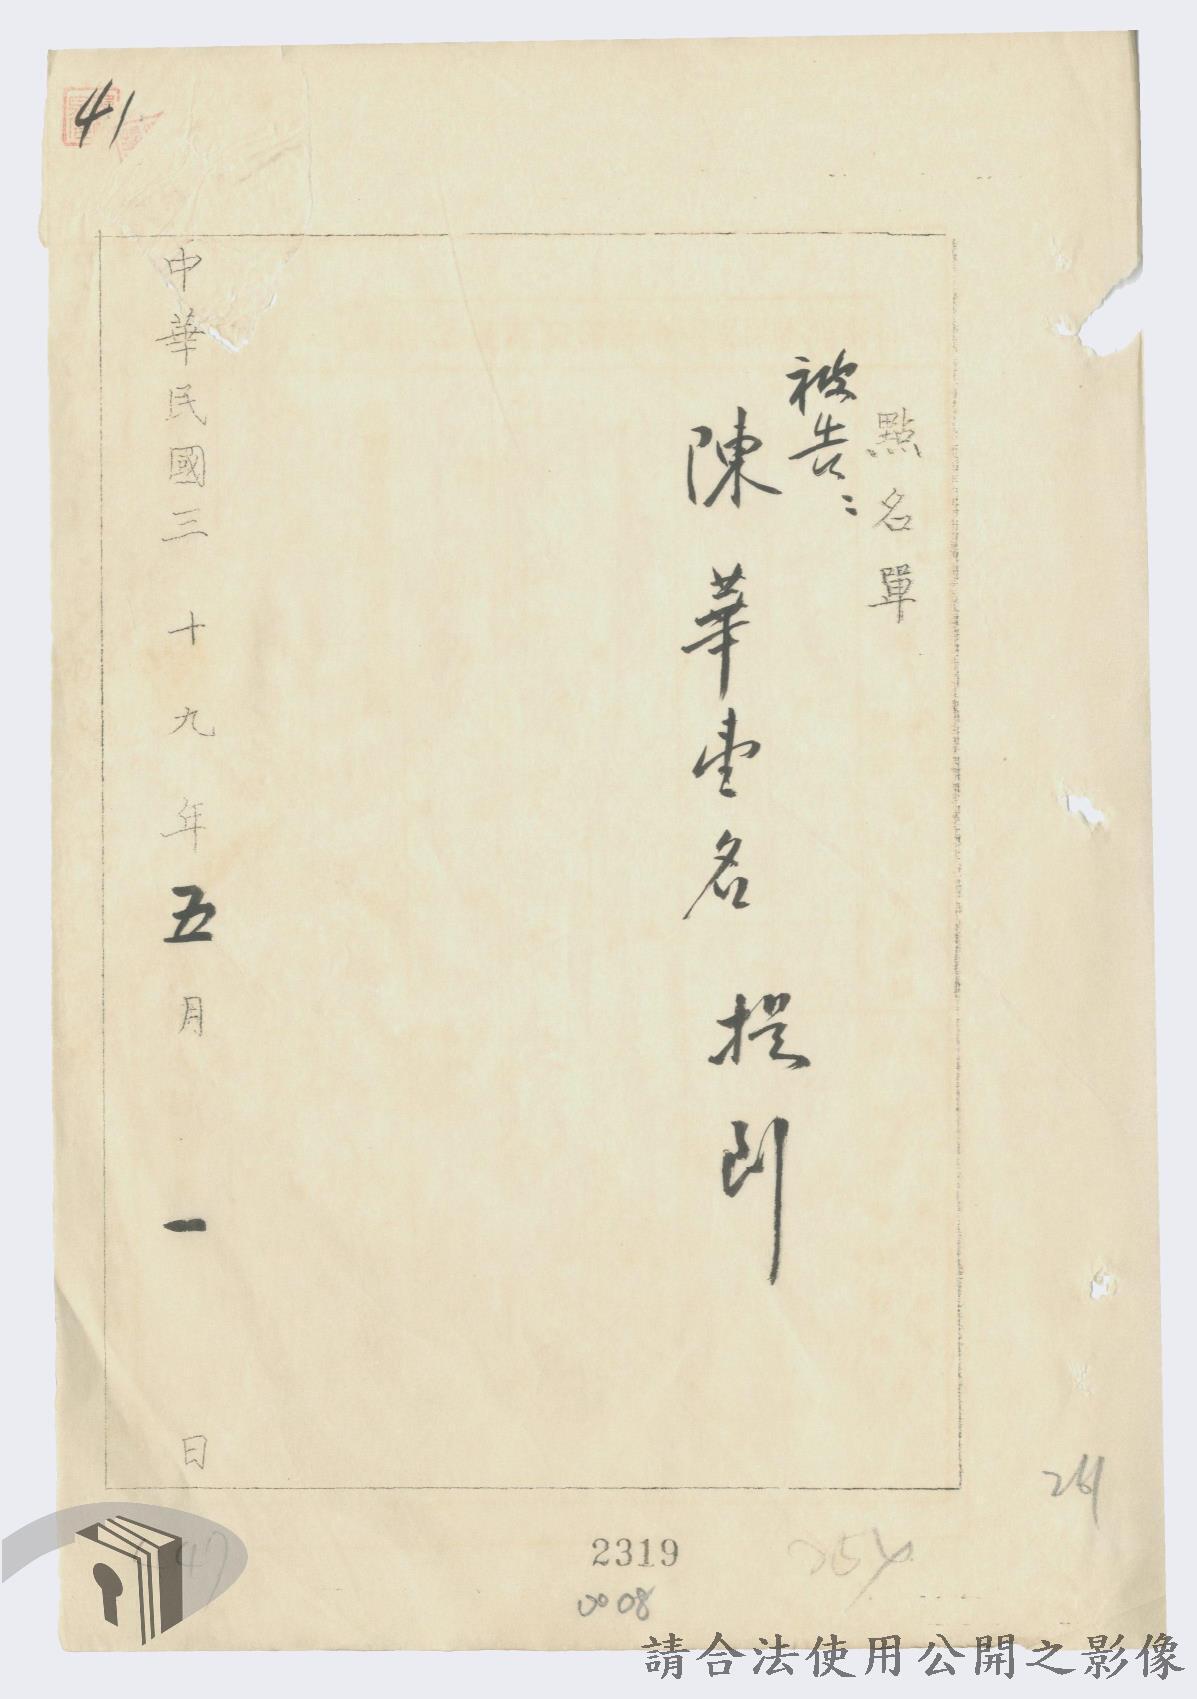 41
點名單
被告：
陳華堂名 提到
中華民國三十九年五月一日
261
2319
0008
請合法使用公開之影像